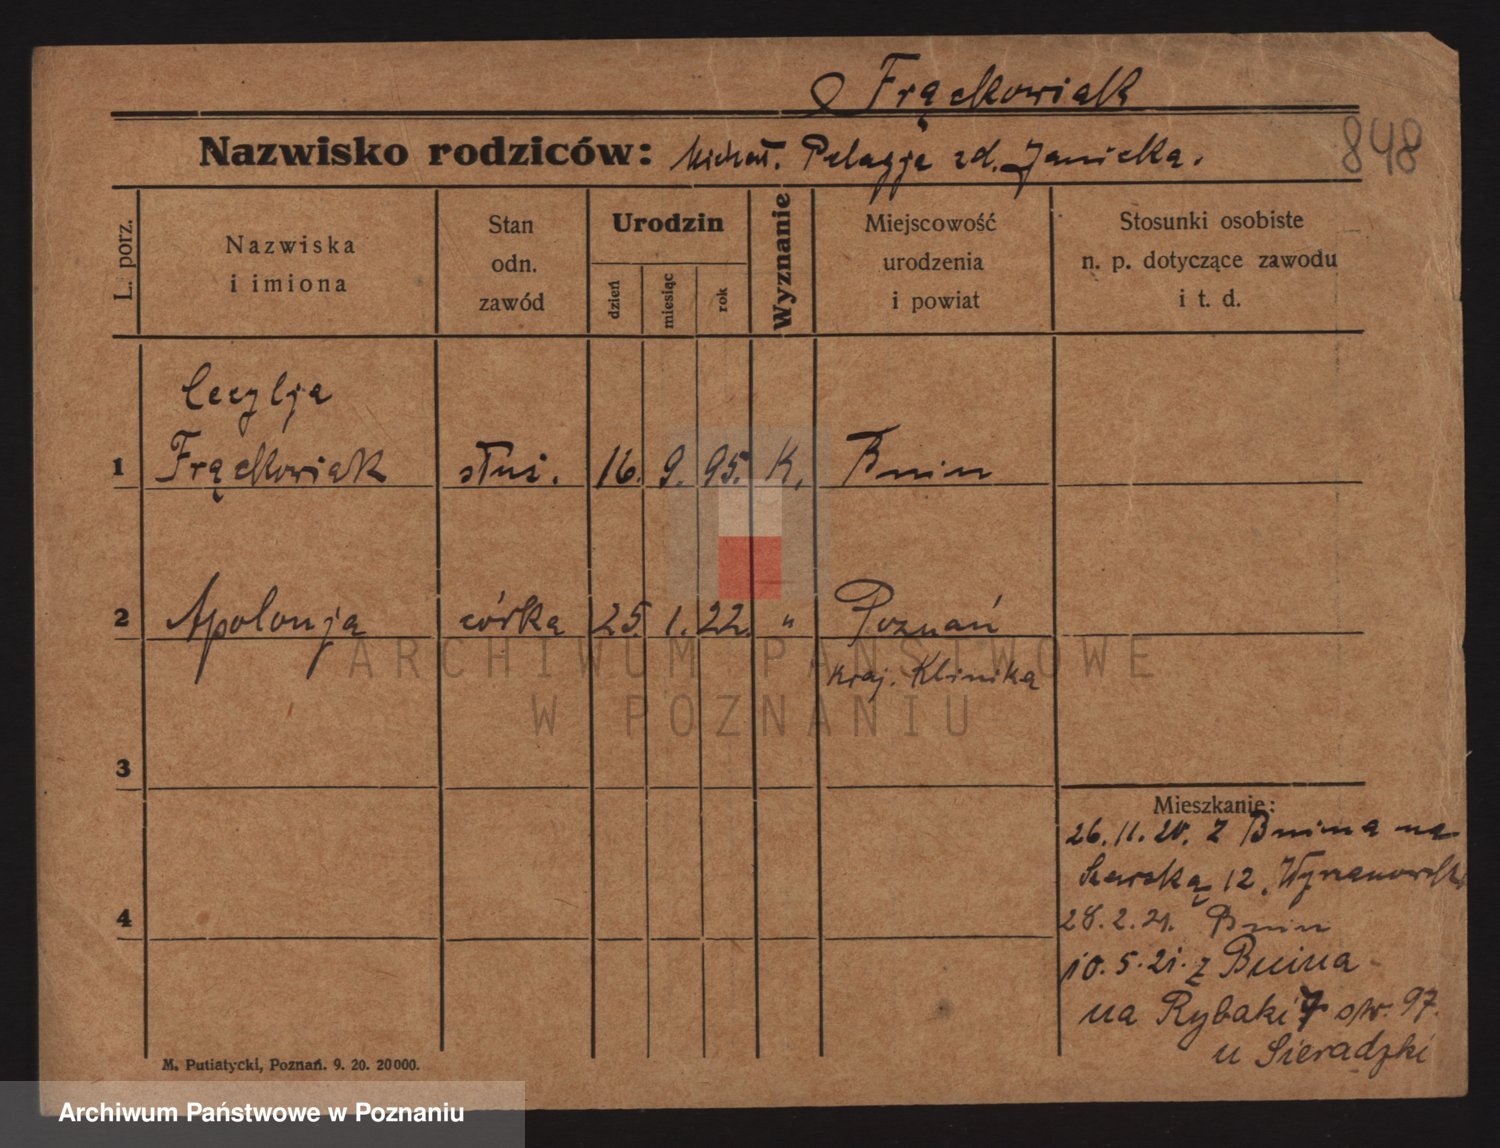 Frąckowiak
Nazwisko rodziców: Michał. Pelagja zd. Janicka.
848
L. porz.
Nazwiska
i imiona
Stan
odn.
zawód
Urodzin
dzień
miesiąc
rok
Wyznanie
Miejscowość
urodzenia
i powiat
Stosunki osobiste
n. p. dotyczące zawodu
i t. d.
Cecylja
1 Frąckowiak służ. 16. 9. 95. K. Bnin
2 Apolonja córka 25. 1. 22. " Poznań
Kraj. Klinika
3
4
Mieszkanie:
26.11.20. z Bnina na
Szewską 12.
28.2.21. Bnin
10.5.21. z Bnina
na Rybaki 7 str. 97.
u Sieradzki
M. Putiatycki, Poznań. 9. 20. 20000.
ARCHIWUM PAŃSTWOWE
W POZNANIU
Archiwum Państwowe w Poznaniu